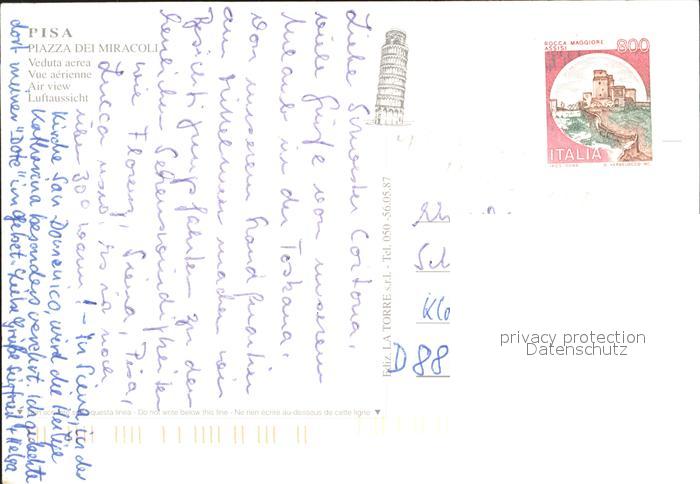 PISA
PIAZZA DEI MIRACOLI
Veduta aerea
Vue aérienne
Air view
Luftaussicht
Liebe Schwester Cortona,
viele Grüße von unserem
Urlaub in der Toskana.
Von unserem Standquartier
am Mittelmeer machen wir
Besichtigungsfahrten zu den
herrlichen Sehenswürdigkeiten
wie Florenz, Siena, Pisa,
Lucca usw. Es ist noch
über 30° warm! - In Siena, in der
Kirche San Domenico, wird die Heilige
Katharina besonders verehrt. Ich gedachte
dort meiner "Dote" im Gebet. Liebe Grüße Siegfried + Helga
Ediz. LA TORRE s.r.l. - Tel. 050 -56.05.87
ROCCA MAGGIORE
ASSISI
800
ITALIA
Sch
Klo
D 88
privacy protection
Datenschutz
questa linea - Do not write below this line - Ne rien écrire au-dessous de cette ligne